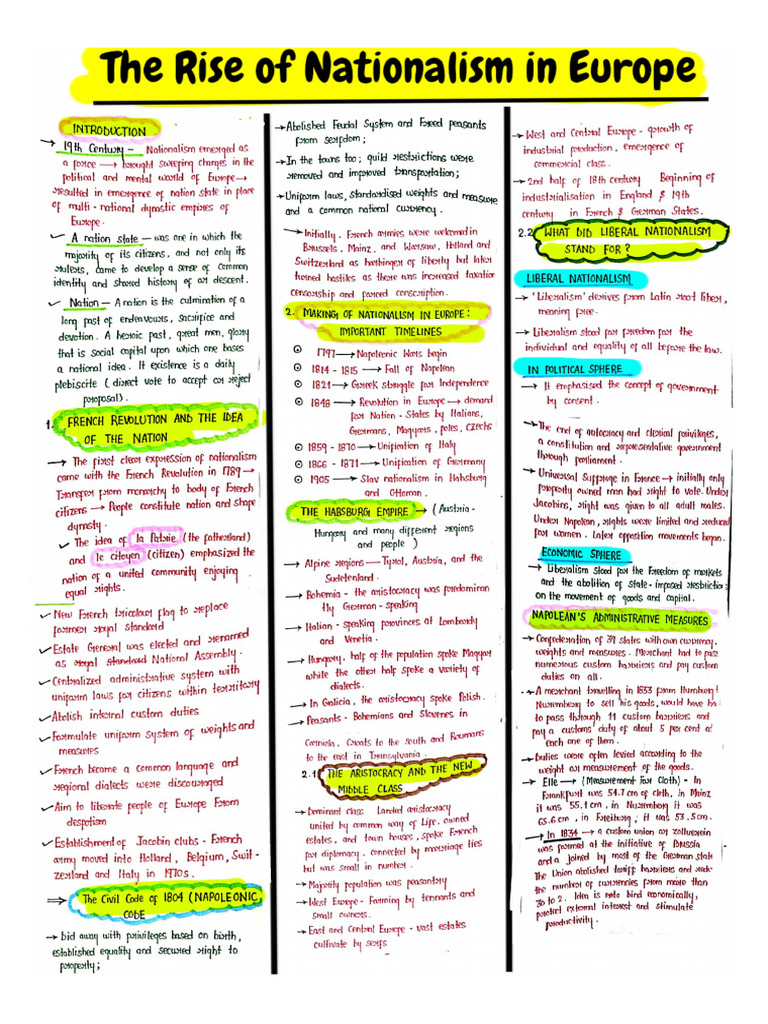 The Rise of Nationalism in Europe
INTRODUCTION
→ 19th Century - Nationalism emerged as
a force → brought sweeping changes in the
political and mental world of Europe →
resulted in emergence of nation state in place
of multi-national dynastic empires of
Europe.
✓ A nation state - was one in which the
majority of its citizens, and not only its
rulers, came to develop a sense of common
identity and shared history of or descent.
✓ Nation - A nation is the culmination of a
long past of endeavours, sacrifice and
devotion. A heroic past, great men, glory
that is social capital upon which one bases
a national idea. It existence is a daily
plebiscite (direct vote to accept or reject
proposal).
1. FRENCH REVOLUTION AND THE IDEA
OF THE NATION
→ The first clear expression of nationalism
came with the French Revolution in 1789 →
Transfer from monarchy to body of French
citizens → People constitute nation and shape
dynasty.
✓ The idea of la Patrie (the fatherland)
and le citoyen (citizen) emphasized the
nation of a united community enjoying
equal rights.
✓ New French tricolour flag to replace
former royal standard
✓ Estate General was elected and renamed
as royal standard National Assembly.
✓ Centralized administrative system with
uniform laws for citizens within territory
✓ Abolish internal custom duties
✓ Formulate uniform system of weights and
measures
✓ French became a common language and
regional dialects were discouraged
✓ Aim to liberate people of Europe from
despotism
✓ Establishment of Jacobin clubs - French
army moved into Holland, Belgium, Swit-
zerland and Italy in 1970s.
⇒ The Civil Code of 1804 (NAPOLEONIC
CODE
→ bid away with privileges based on birth,
established equality and secured right to
property;
→ Abolished Feudal System and Freed peasants
from serfdom;
→ In the towns too; guild restrictions were
removed and improved transportation;
→ Uniform laws, standardised weights and measure
and a common national currency.
→ Initially. French armies were welcomed in
Brussels, Mainz, and Warsaw, Holland and
Switzerland as harbinger of liberty but later
turned hostiles as there was increased taxation
censorship and forced conscription.
2. MAKING OF NATIONALISM IN EUROPE:
IMPORTANT TIMELINES
1797 → Napoleonic Wars begin
1814 - 1815 → Fall of Napolean
1821 → Greek struggle for Independence
1848 → Revolution in Europe → demand
for Nation - States by Italians,
Germans, Magyars, poles, Czechs
1859 - 1870 → Unification of Italy
1866 - 1871 → Unification of Germany
1905 → Slav nationalism in Habsburg
and Ottoman.
THE HABSBURG EMPIRE → (Austria-
Hungary and many different regions
and people)
→ Alpine regions - Tyrol, Austria, and the
Sudetenland.
→ Bohemia - the aristocracy was predominan
tly German - speaking
→ Italian - speaking provinces of Lombardy
and Venetia.
→ Hungary, half of the population spoke Magyar
while the other half spoke a variety of
dialects.
→ In Galicia, the aristocracy spoke Polish.
→ Peasants - Bohemians and Slovenes in
Carniola, Croats to the south and Roumans
to the east in Transylvania.
2.1 THE ARISTOCRACY AND THE NEW
MIDDLE CLASS
→ Dominant class Landed aristocracy
united by common way of life, owned
estates, and town houses, spoke French
for diplomacy. connected by marriage ties
but was small in number.
→ Majority population was peasantry
→ West Europe - Farming by tennants and
small owners.
→ East and Central Europe - vast estates
cultivate by serfs
→ West and Central Europe - growth of
industrial production, emergence of
commercial class.
→ 2nd half of 18th century Beginning of
industrialisation in England & 19th
century in French & German States.
2.2 WHAT DID LIBERAL NATIONALISM
STAND FOR?
LIBERAL NATIONALISM
→ 'Liberalism' derives from Latin root liber,
meaning free.
→ Liberalism stood for freedom for the
individual and equality of all before the law.
IN POLITICAL SPHERE
→ It emphasised the concept of government
by consent.
→ The end of autocracy and clerical privileges,
a constitution and representative government
through parliament.
→ Universal Suffrage in France → initially only
property owned man had right to vote. Under
Jacobins, right was given to all adult males.
Under Napolean, rights were limited and reduced
for women. Later opposition movements began.
ECONOMIC SPHERE
→ Liberalism stood for the Freedom of markets
and the abolition of State-imposed restriction
on the movement of goods and capital.
NAPOLEAN'S ADMINISTRATIVE MEASURES
→ Confederation of 39 states with own currency,
weights and measures. Merchant had to pass
numerous custom barriers and pay custom
duties on all.
→ A merchant travelling in 1833 from Humborg
Nuremberg to sell his goods, would have ha
to pass through 11 custom barriers and
pay a customs' duty of about 5 per cent at
each one of them.
→ Duties were often levied according to the
weight or measurement of the goods.
→ Elle → (Measurement For Cloth) - In
Frankfurt was 54.7 cm of cloth, in Mainz
it was 55.1 cm, in Nuremberg it was
65.6 cm, in Freiburg; it was 53.5 cm.
→ In 1834 → a custom union or zollverein
was formed at the initiative of Prussia
and a joined by most of the German state
The Union abolished tariff barriers and redu-
the number of currencies from more than
30 to 2. Idea is note bind economically,
protect external interest and stimulate
productivity.